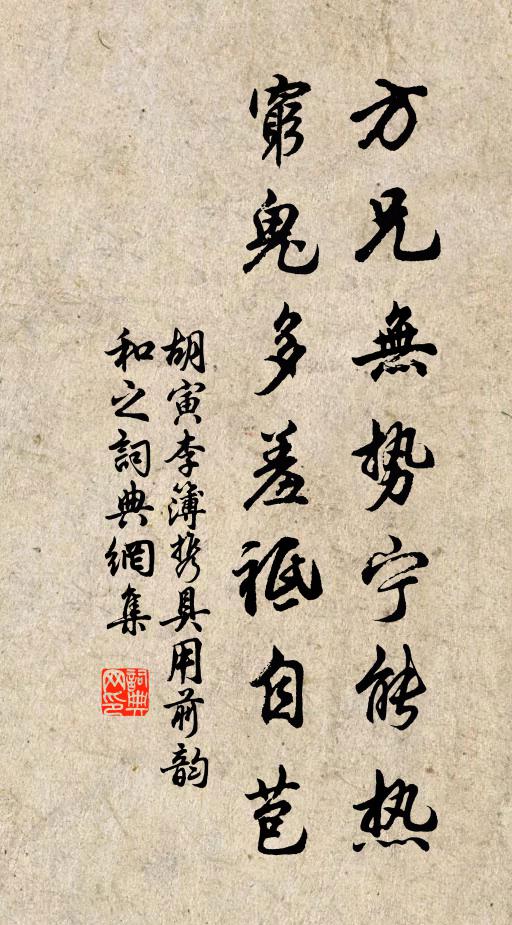 方兄無势宁能热
穷鬼多羞祗自苞
胡寅李簿携具用前韵
和之詞典網集
詞典网印